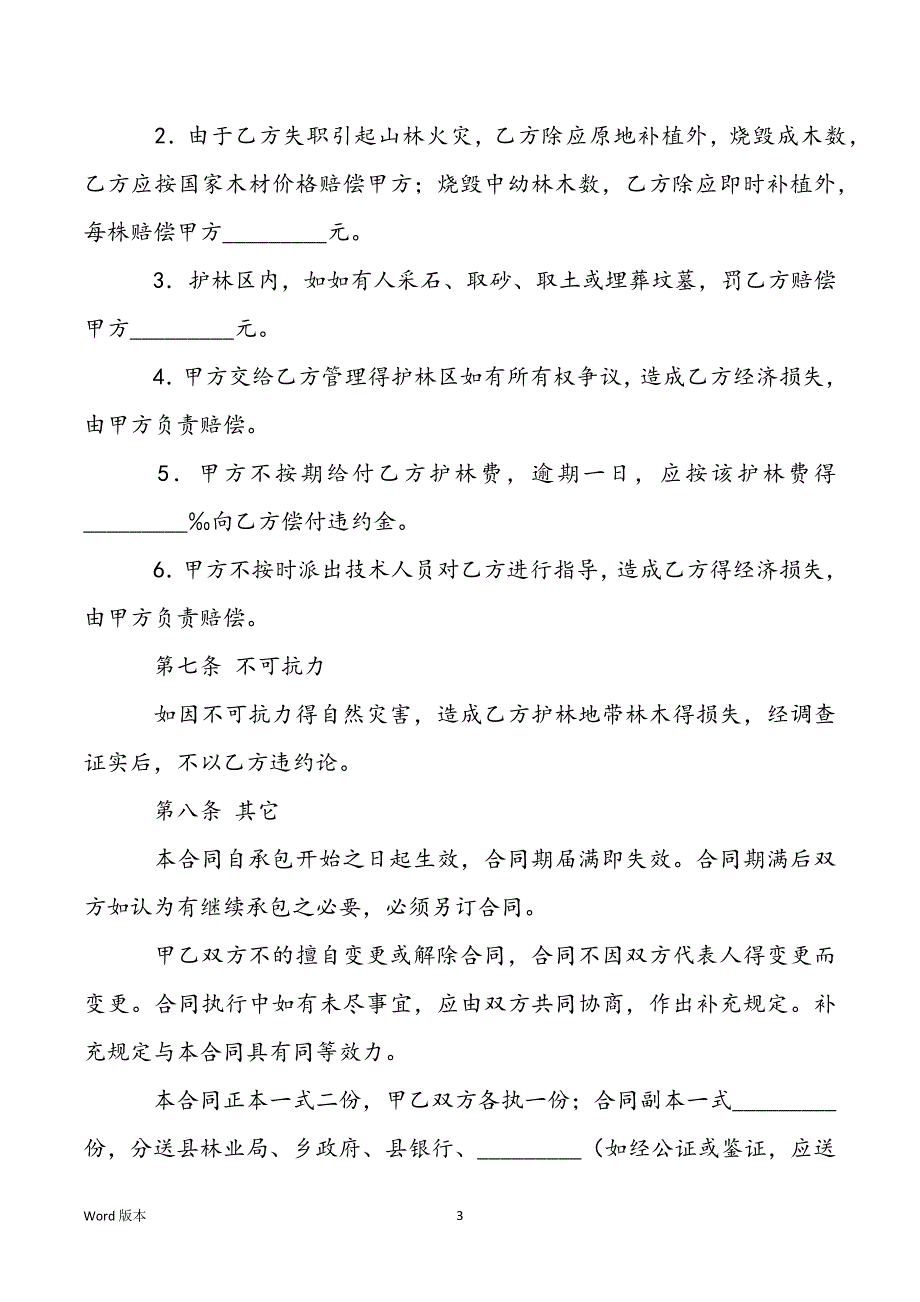 2．由于乙方失职引起山林火灾，乙方除应原地补植外，烧毁成木数，
乙方应按国家木材价格赔偿甲方；烧毁中幼林木数，乙方除应即时补植外，
每株赔偿甲方_________元。
3．护林区内，如如有人采石、取砂、取土或埋葬坟墓，罚乙方赔偿
甲方_________元。
4．甲方交给乙方管理得护林区如有所有权争议，造成乙方经济损失，
由甲方负责赔偿。
5．甲方不按期给付乙方护林费，逾期一日，应按该护林费得
_________‰向乙方偿付违约金。
6．甲方不按时派出技术人员对乙方进行指导，造成乙方得经济损失，
由甲方负责赔偿。
第七条 不可抗力
如因不可抗力得自然灾害，造成乙方护林地带林木得损失，经调查
证实后，不以乙方违约论。
第八条 其它
本合同自承包开始之日起生效，合同期届满即失效。合同期满后双
方如认为有继续承包之必要，必须另订合同。
甲乙双方不的擅自变更或解除合同，合同不因双方代表人得变更而
变更。合同执行中如有未尽事宜，应由双方共同协商，作出补充规定。补
充规定与本合同具有同等效力。
本合同正本一式二份，甲乙双方各执一份；合同副本一式_________
份，分送县林业局、乡政府、县银行、_________（如经公证或鉴证，应送
Word 版本 3